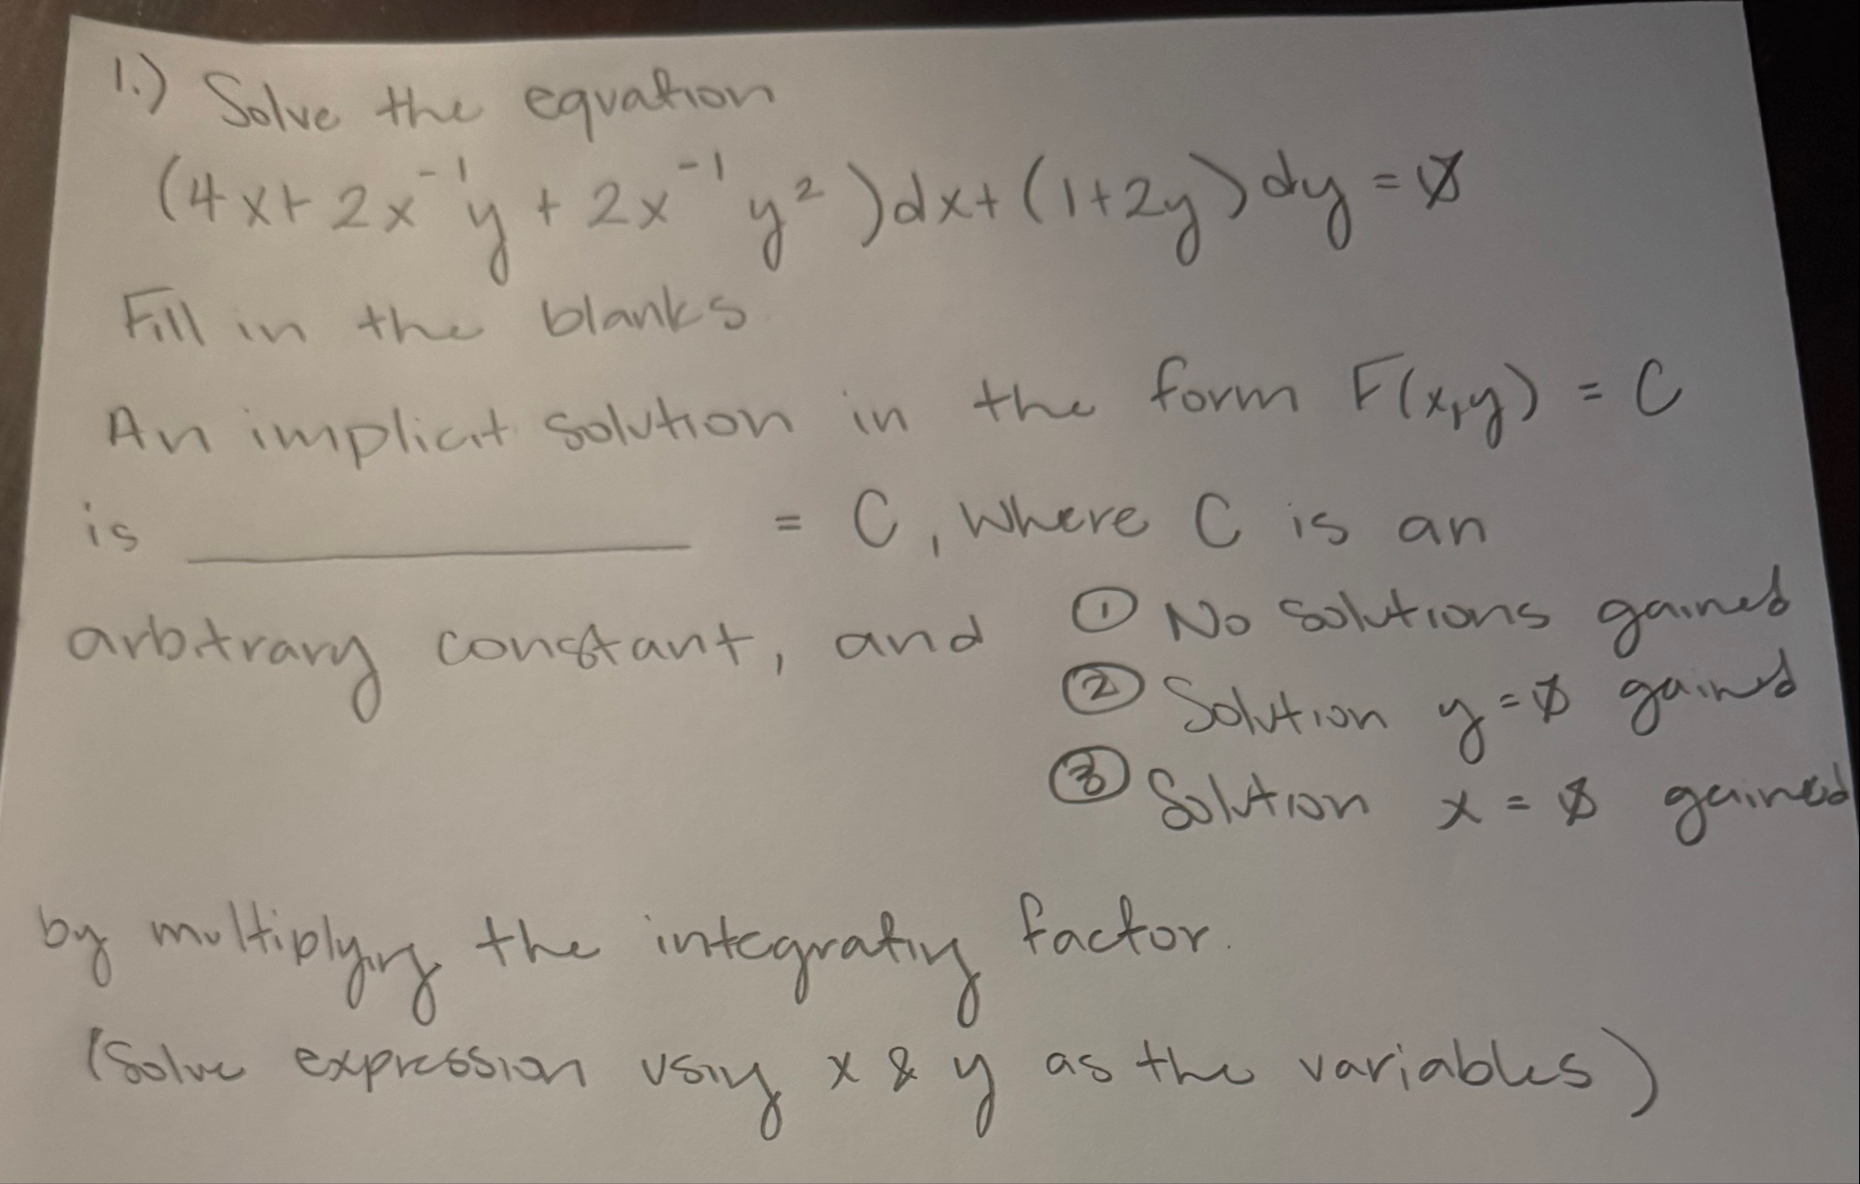 1.) Solve the equation
(4x+2x⁻¹y+2x⁻¹y²)dx+(1+2y)dy=0
Fill in the blanks
An implicit solution in the form F(x,y) = C
is ____________ = C, where C is an
arbitrary constant, and ① No solutions gained
② Solution y=0 gained
③ Solution x=0 gained
by multiplying the integrating factor.
(Solve expression using x & y as the variables)